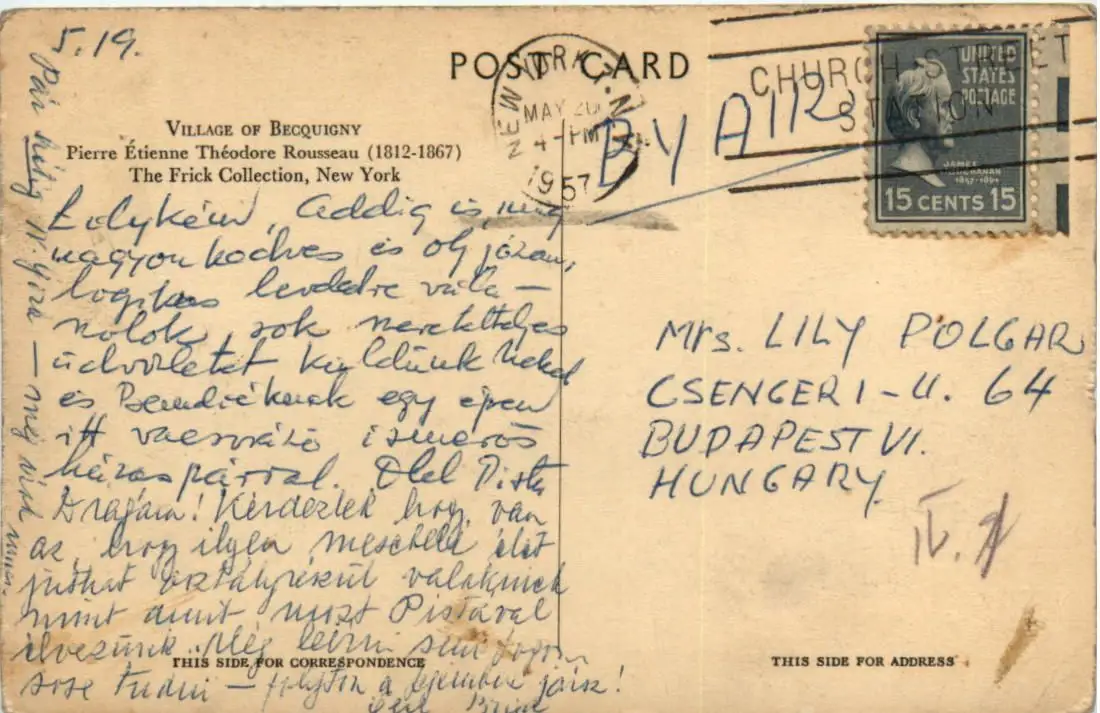 5.19.
POST CARD
NEW YORK, N.Y.
MAY 20
4-PM
1957
CHURCH STREET
STATION
UNITED
STATES
POSTAGE
JAMES
BUCHANAN
15 CENTS 15
BY AIR
VILLAGE OF BECQUIGNY
Pierre Étienne Théodore Rousseau (1812-1867)
The Frick Collection, New York
Addig is, míg
nagyon kedves és oly józan,
logikus leveledre vála-
szolok, sok szeretetteljes
üdvözletet küldünk Neked
és egy épen
itt vacsorázó ismerős
házaspárral. Ölel Pista
Drágám! Kérdezlek hogy van
az, hogy ilyen mesebeli élet
juthat osztályrészül valakinek
mint amit most Pistával
élvezünk. Még leírni sem fogom
sose tudni - folyton a
Pár hétig
Mrs. LILY POLGAR
CSENGERI-U. 64
BUDAPEST VI.
HUNGARY
THIS SIDE FOR CORRESPONDENCE
THIS SIDE FOR ADDRESS